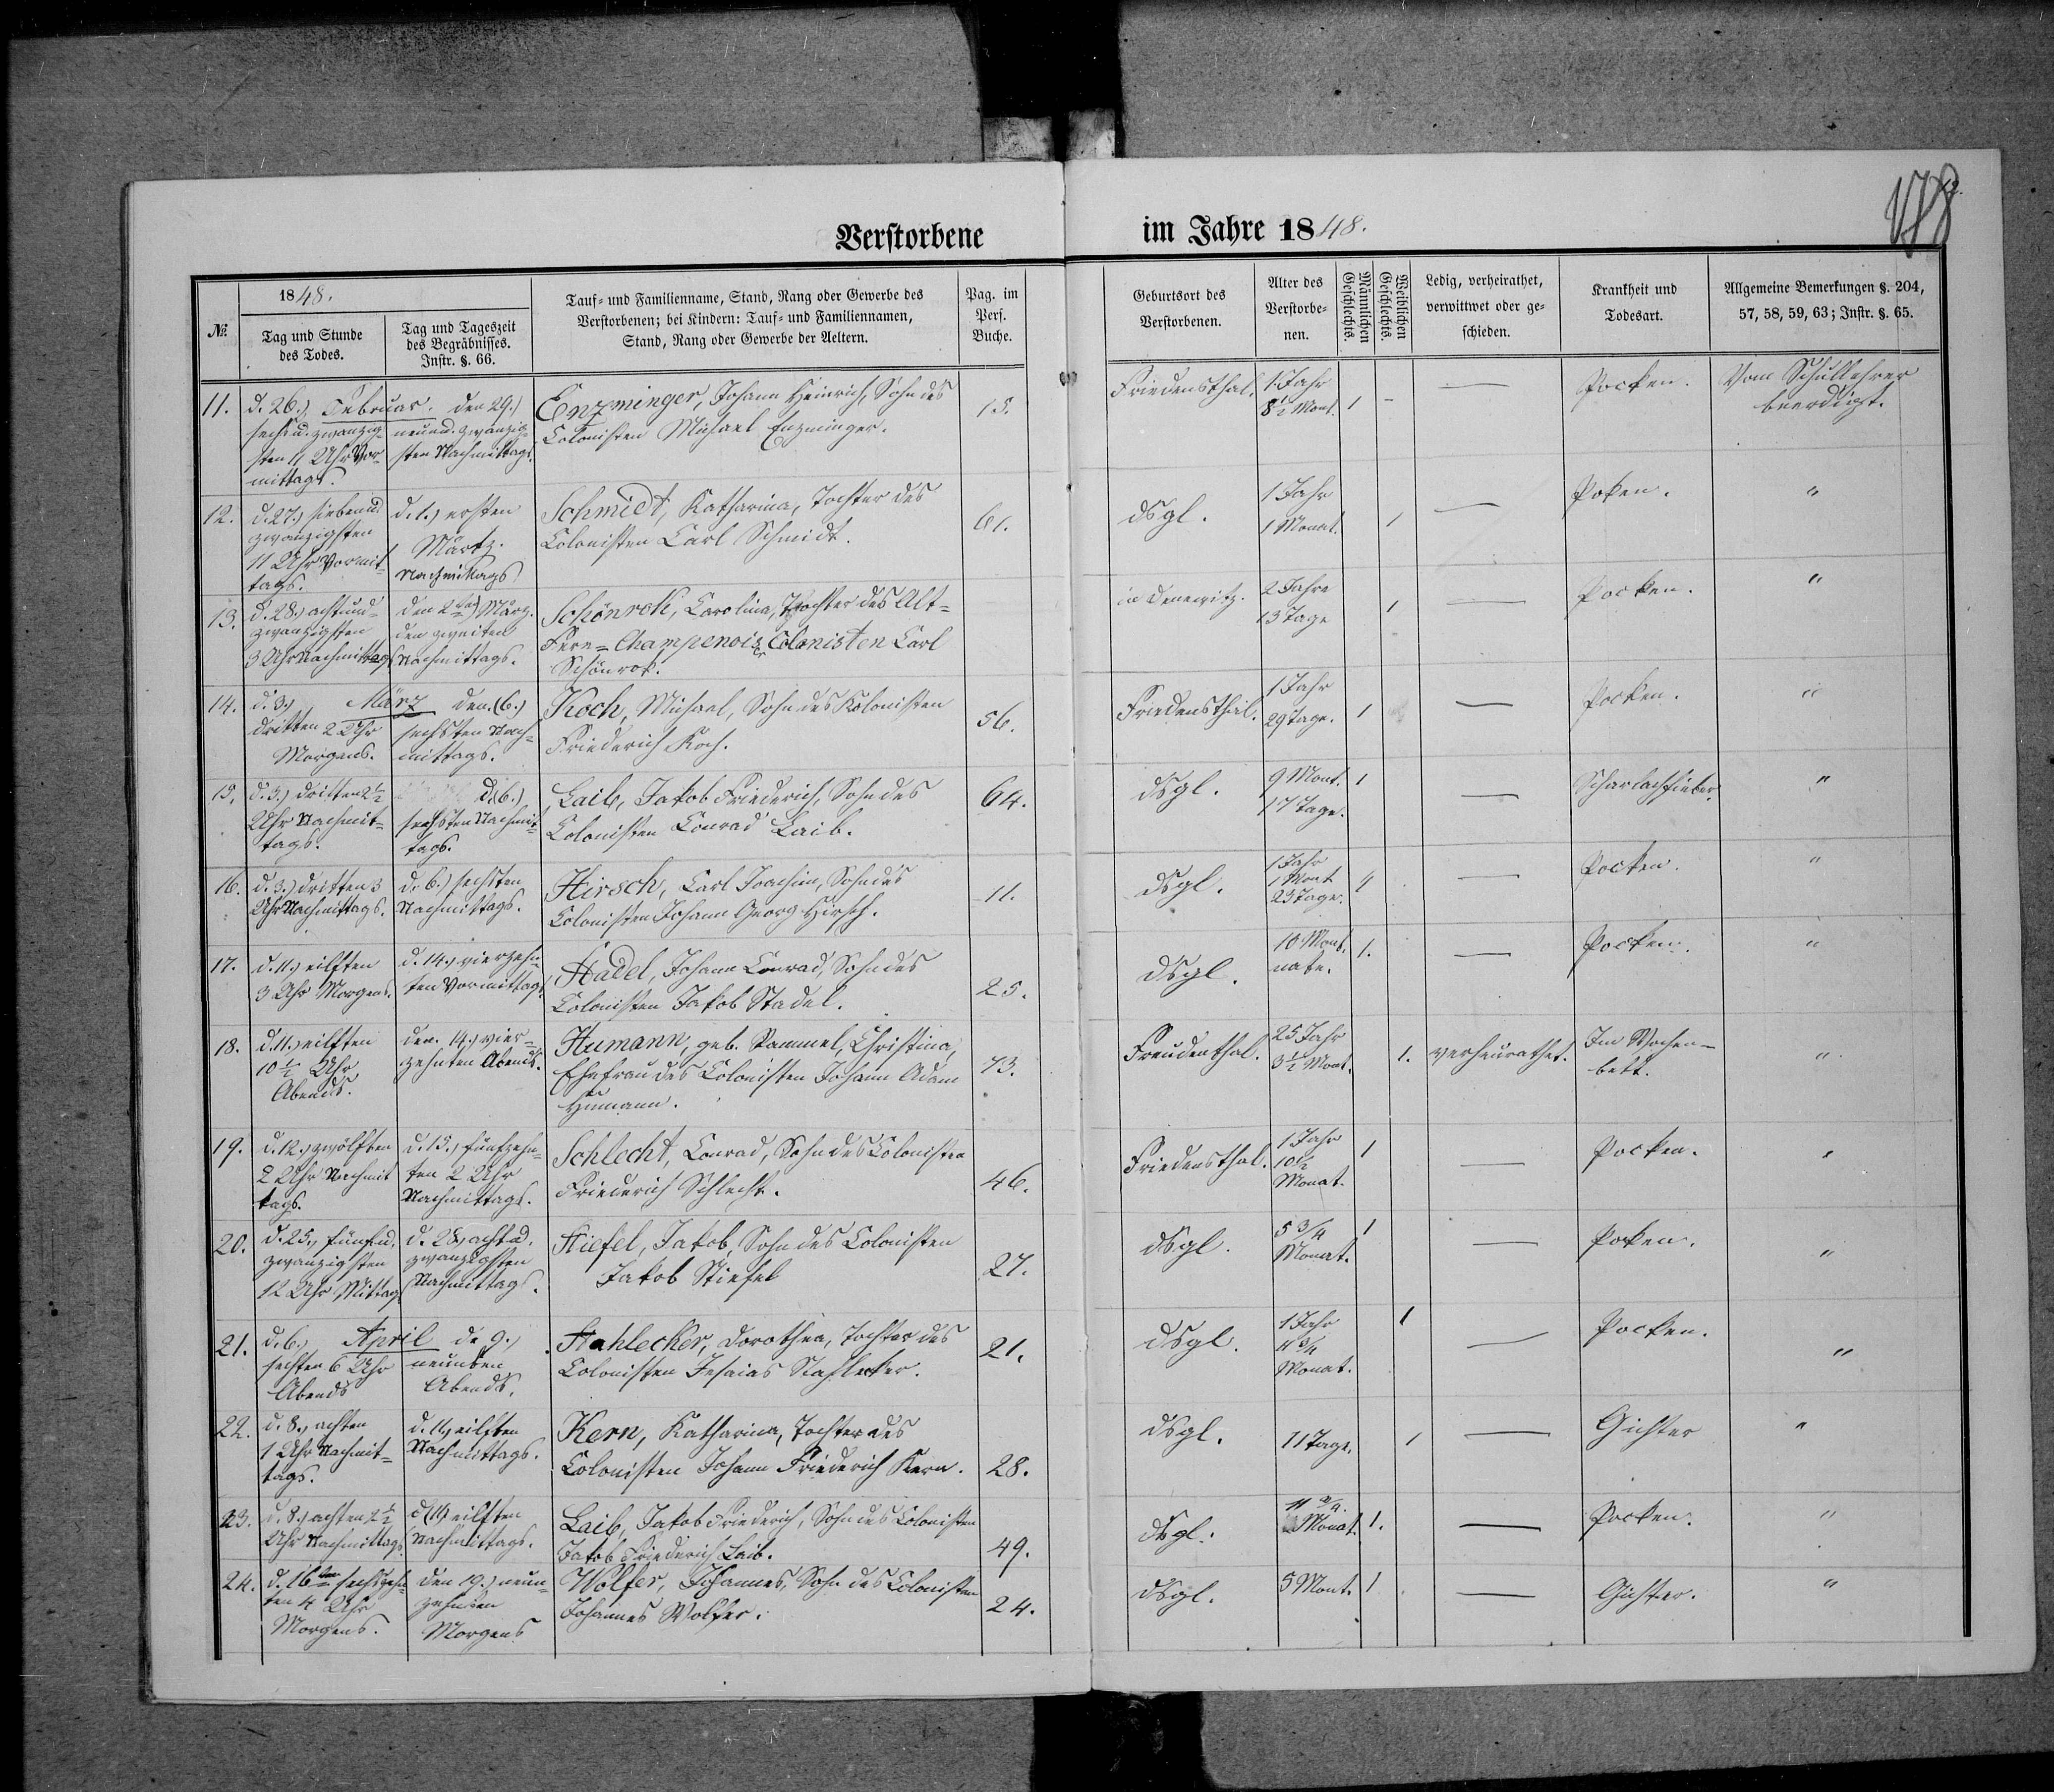 Verstorbene im Jahre 1848.
178
№.
1848.
Tag und Stunde
des Todes.
Tag und Tageszeit
des Begräbnisses.
Instr. §. 66.
Tauf- und Familienname, Stand, Rang oder Gewerbe des
Verstorbenen; bei Kindern: Tauf- und Familiennamen,
Stand, Rang oder Gewerbe der Aeltern.
Pag. im
Pers.
Buche.
Geburtsort des
Verstorbenen.
Alter des
Verstorbe-
nen.
Männlichen
Geschlechts.
Weiblichen
Geschlechts.
Ledig, verheirathet,
verwittwet oder ge-
schieden.
Krankheit und
Todesart.
Allgemeine Bemerkungen §. 204,
57, 58, 59, 63; Instr. §. 65.
11.
d. 26.) Februar.
sechsu. zwanzig-
sten 11 Uhr Vor-
mittags.
den 29.)
neunu. zwanzig-
sten Nachmittags.
Enzminger, Johann Heinrich, Sohn des
Colonisten Michael Enzminger.
15.
Friedensthal.
1 Jahr
8½ Mont.
1
-
—
Pocken.
Vom Schullehrer
beerdigt.
12.
d. 27.) siebenu.
zwanzigsten
11 Uhr Vormit-
tags.
d. 1.) ersten
Märtz.
Nachmittags
Schmidt, Katharina, Tochter des
Colonisten Carl Schmidt.
61.
dsgl.
1 Jahr
1 Monat.
1
—
Poken.
"
13.
d. 28.) achtund-
zwanzigsten
3 Uhr Nachmittags
den 2ten) März.
den zweiten
Nachmittags.
Schönrok, Carolina, Tochter des Alt-
Fere-Champenoiser Colonisten Carl
Schönrok.
in Denewitz.
2 Jahre
13 Tage
1
—
Pocken.
"
14.
d. 3.) März
dritten 2 Uhr
Morgens.
den (6.)
sechsten Nach-
mittags.
Koch, Michael, Sohn des Kolonisten
Friederich Koch.
56.
Friedensthal.
1 Jahr
29 Tage.
1
—
Pocken.
"
15.
d. 3.) dritten 2½
Uhr Nachmit-
tags.
d. (6.)
sechsten Nachmit-
tags.
Laib, Jakob Friederich, Sohn des
Colonisten Conrad Laib.
64.
dsgl.
9 Mont.
17 Tage.
1
—
Scharlachfieber.
"
16.
d. 3.) dritten 3
Uhr Nachmittags.
d. 6.) sechsten
Nachmittags.
Hirsch, Carl Joachim, Sohn des
Colonisten Johann Georg Hirsch.
11.
dsgl.
1 Jahr
1 Mont
23 Tage.
1
—
Pocken.
"
17.
d. 11.) eilften
3 Uhr Morgens.
d. 14.) vierzehn-
ten Vormittags.
Stadel, Johann Conrad, Sohn des
Colonisten Jakob Stadel.
25.
dsgl.
10 Mont.
nate.
1.
—
Pocken.
"
18.
d. 11.) eilften
10½ Uhr
Abends.
den. 14.) vier-
zehnten Abends.
Humann, geb. Rammel, Christina,
Ehefrau des Colonisten Johann Adam
Humann.
73.
Freudenthal.
25 Jahr
3½ Mont.
1.
verheurathet.
Im Wochen-
bett.
"
19.
d. 12.) zwölften
2 Uhr Nachmit
tags.
d. 15.) fünfzehn-
ten 2 Uhr
Nachmittags.
Schlecht, Conrad, Sohn des Colonisten
Friederich Schlecht.
46.
Friedensthal.
1 Jahr
10½
Monat.
1
—
Pocken.
"
20.
d. 25.) fünfu.
zwanzigsten
12 Uhr Mittags
d. 28.) achtu.
zwanzigsten
Nachmittags.
Stiefel, Jakob, Sohn des Colonisten
Jakob Stiefel
27.
dsgl.
5 3/4
Monat.
1
—
Poken.
"
21.
d. 6.) April
sechsten 6 Uhr
Abends
d. 9.)
neunten
Abends.
Stahlecker, Dorothea, Tochter des
Colonisten Jesaias Stahlecker.
21.
dsgl.
1 Jahr
4 3/4
Monat.
1
—
Pocken.
"
22.
d. 8.) achten
1 Uhr Nachmit-
tags.
d. 11.) eilften
Nachmittags.
Kern, Katharina, Tochter des
Colonisten Johann Friederich Kern.
28.
dsgl.
11 Tage.
1
—
Gichter
"
23.
d. 8.) achten 2½
Uhr Nachmittags.
d (11) eilften
Nachmittags.
Laib, Jakob Friederich, Sohn des Colonisten
Jakob Friederich Laib.
49.
dsgl.
Monat.
1.
—
Pocken.
"
24.
d. 16ten sechszehn-
ten 4 Uhr
Morgens.
den 19.) neun-
zehnten
Morgens
Wolfer, Johannes, Sohn des Colonisten
Johannes Wolfer.
24.
dsgl.
5 Mont.
1
—
Gichter.
"